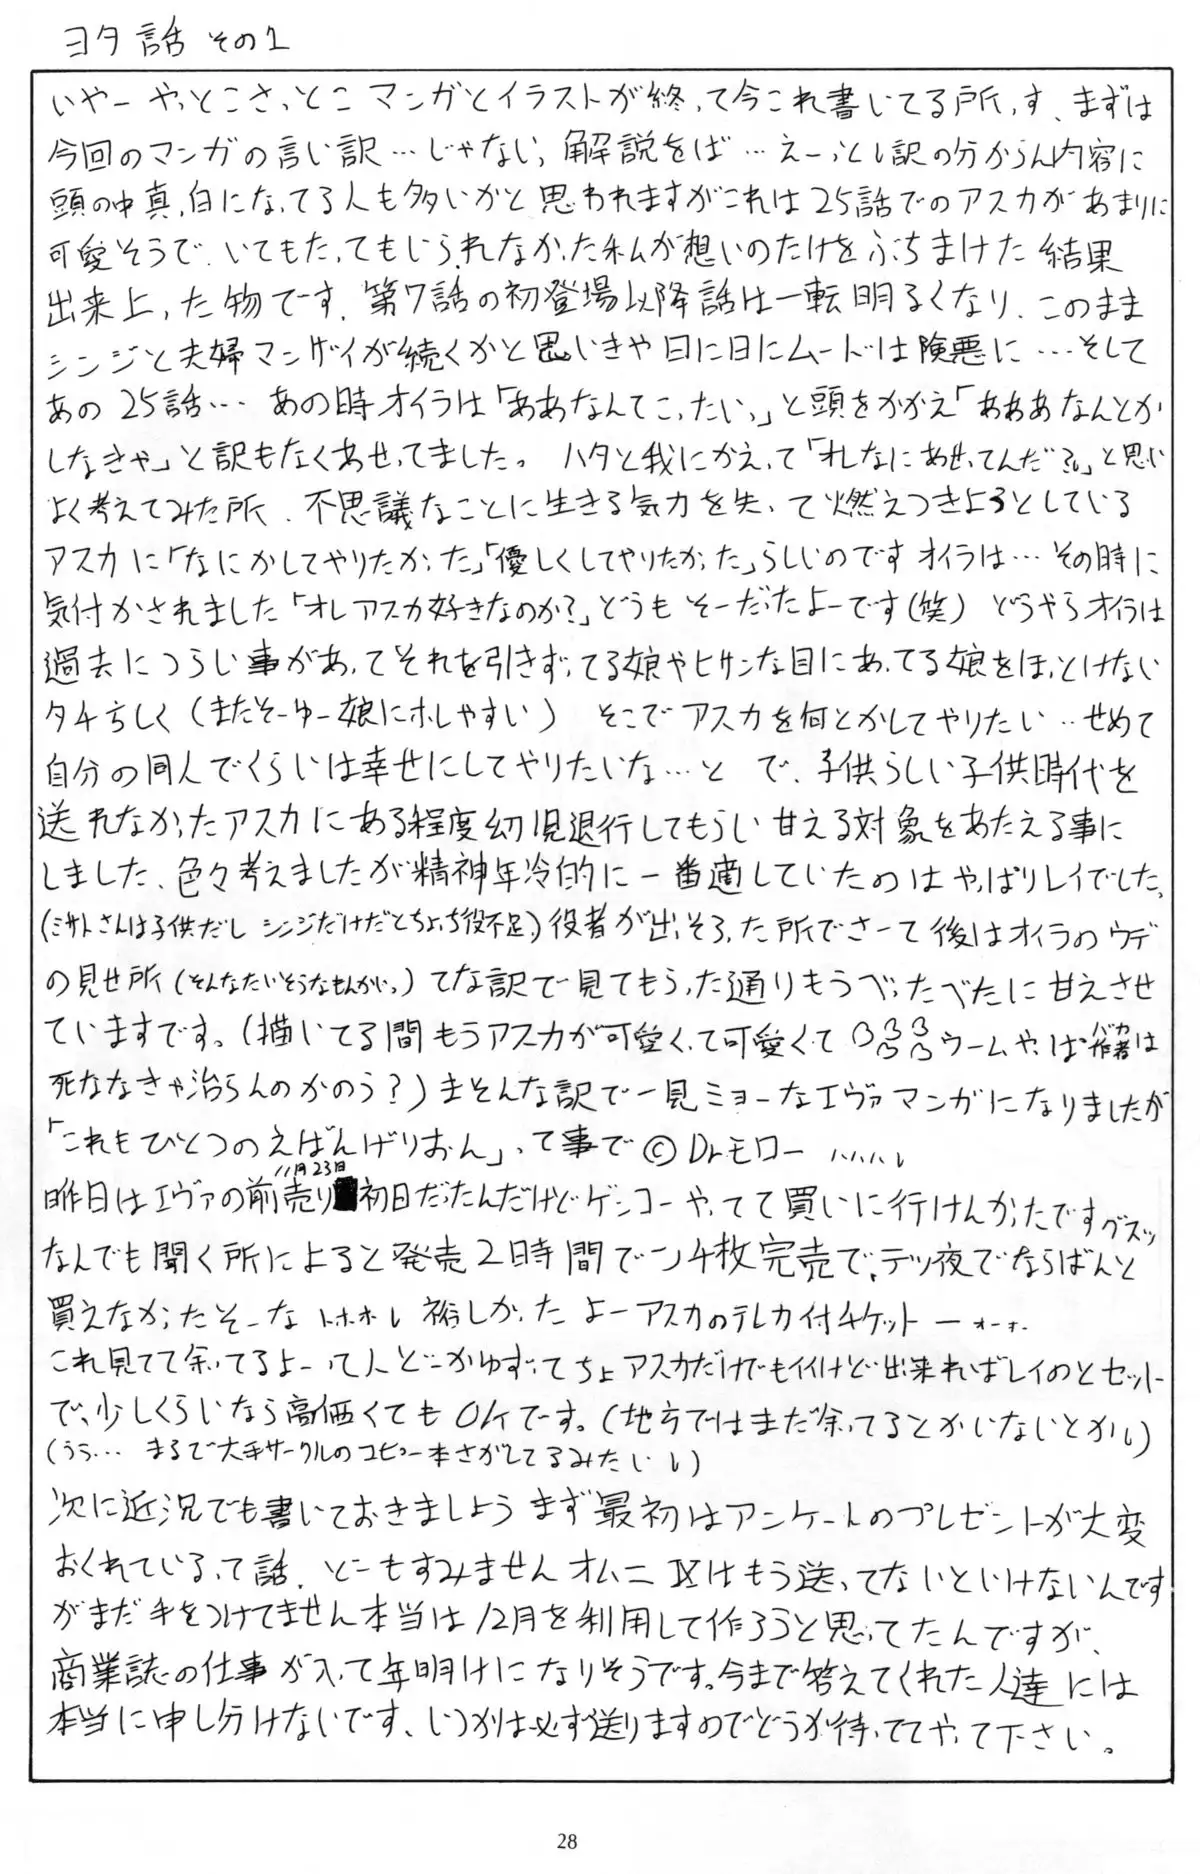 ヨタ話 その1
いやー やっとこさっとこ マンガとイラストが終って今これ書いてる所っす、まずは
今回のマンガの言い訳…じゃない、解説をば…えーっとい訳の分からん内容に
頭の中真っ白になってる人も多いかと思われますがこれは25話でのアスカがあまりに
可愛そうで、いてもたってもいられなかった私が想いのたけをぶちまけた結果
出来上った物です。第7話の初登場以降話は一転明るくなり、このまま
シンジと夫婦マンザイが続くかと思いきや日に日にムードは険悪に…そして
あの25話… あの時オイラは「ああなんてこったいっ」と頭をかかえ「あああなんとか
しなきゃ」と訳もなくあせってました。 ハタと我にかえって「オレなにあせってんだ?」と思い
よく考えてみた所、不思議なことに生きる気力を失って燃えつきようとしている
アスカに「なにかしてやりたかった」「優しくしてやりたかった」らしいのです オイラは…その時に
気付かされました「オレアスカ好きなのか?」どうもそーだったよーです(笑) どうやらオイラは
過去につらい事があってそれを引きずってる娘やヒサンな目にあってる娘をほっとけない
タチらしく(またそーゆー娘にホレやすい) そこでアスカを何とかしてやりたい‥せめて
自分の同人でくらいは幸せにしてやりたいな…と で、子供らしい子供時代を
送れなかったアスカにある程度幼児退行してもらい甘える対象をあたえる事に
しました、色々考えましたが精神年冷的に一番適していたのはやっぱりレイでした。
(ミサトさんは子供だし シンジだけだとちょっち役不足)役者が出そろった所でさーて後はオイラのウデ
の見せ所(そんなたいそうなもんかいっ)てな訳で見てもらった通りもうべったべたに甘えさせ
ていますです。(描いてる間もうアスカが可愛くって可愛くて ウームやっぱ作者(バカ)は
死ななきゃ治らんのかのう?)まそんな訳で一見ミョーなエヴァマンガになりましたが
「これもひとつのえばんげりおん」って事で ©Dr.モロー
昨日はエヴァの前売り(11月23日)初日だったんだけどゲンコーやってて買いに行けんかったですグスッ
なんでも聞く所によると発売2時間で 枚完売で、テツ夜でならばんと
買えなかったそーな トホホ 裕しかったよーアスカのテレカ付チケットーォーォー
これ見てて余ってるよーって人どーかゆずってちょアスカだけでもイイけど出来ればレイのとセット
で、少しくらいなら高価くてもOKです。(地方ではまだ余ってるとかいないとか)
(うう… まるで大手サークルのコピー本さがしてるみたい)
次に近況でも書いておきましょう まず最初はアンケートのプレゼントが大変
おくれているって話、どーもすみません オムニⅨはもう送ってないといけないんです
がまだ手をつけてません本当は12月を利用して作ろうと思ってたんですが、
商業誌の仕事が入って年明けになりそうです。今まで答えてくれた人達には
本当に申し分けないです、いつかは必ず送りますのでどうか待っててやって下さい。
28